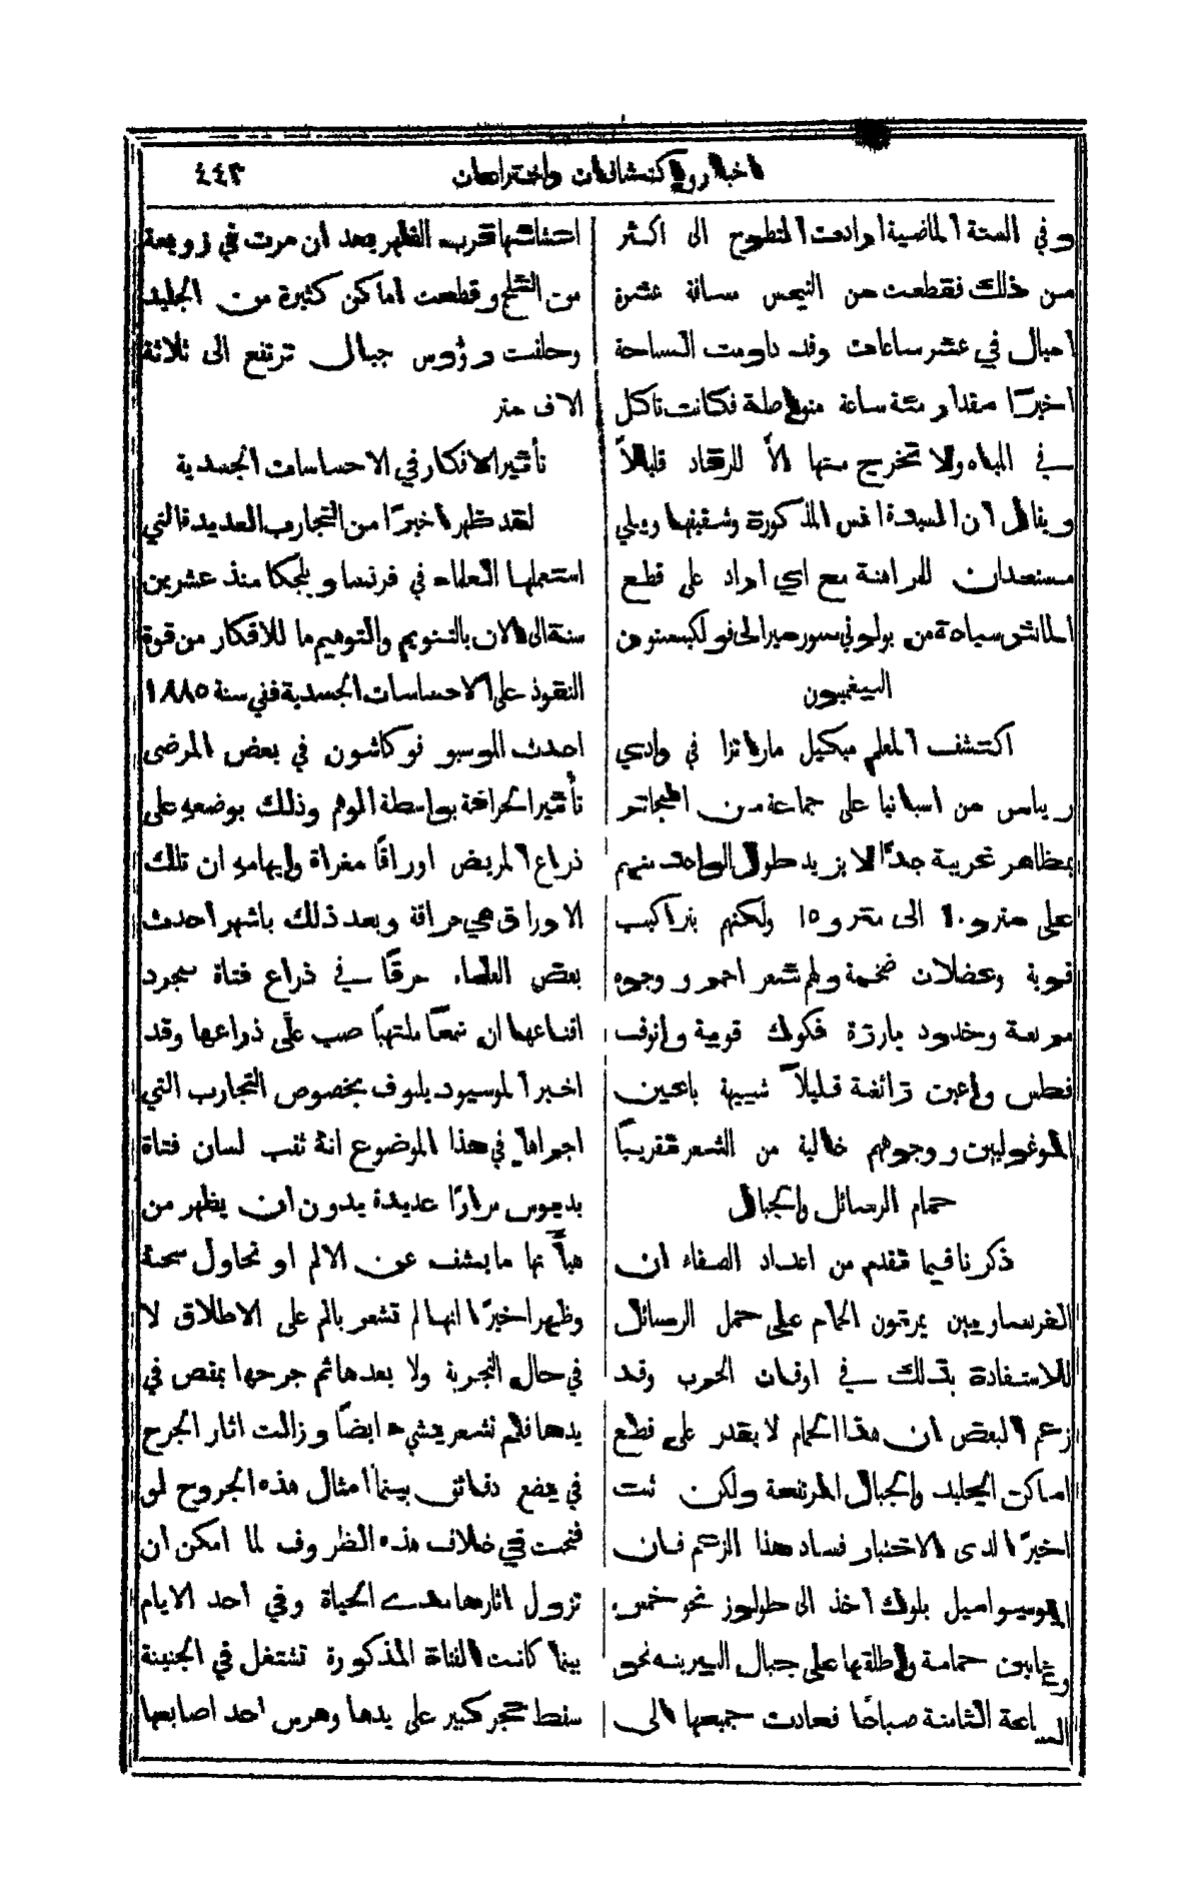 اخبار واكتشافات واختراعات
٤٤٣
وفي السنة الماضية ارادت التطوح الى اكثر
من ذلك فقطعت من التيمس مسافة عشرة
اميال في عشر ساعات وقد داومت السباحة
اخيرًا مقدار مئة ساعة متواصلة فكانت تاكل
في المياه ولا تخرج منها الاَّ للرقاد قليلاً
ويقال ان السيدة انس المذكورة وشقيقها ويلي
مستعدان للمراهنة مع اي اراد على قطع
المانش سباحة من بولوني سور مير الى فولكستون
البيغميون
اكتشف المعلم ميكيل ماراتزا في وادي
ريباس من اسبانيا على جماعة من
بمظاهر غريبة جدًّا لا يزيد طول الواحد منهم
على متر و١٠ الى متر و١٥ ولكنهم بتراكيب
قوية وعضلات ضخمة ولهم شعر احمر ووجوه
مربعة وخدود بارزة فكوك قوية وانوف
فطس واعين زائغة قليلاً شبيهة باعين
الموغوليين ووجوههم خالية من الشعر تقريبًا
حمام الرسائل والجبال
ذكرنا فيما تقدم من اعداد الصفاء ان
الفرنساويين يمرنون الحمام على حمل الرسائل
للاستفادة بذلك في اوقات الحرب وقد
زعم البعض ان هذا الحمام لا يقدر على قطع
اماكن الجليد والجبال المرتفعة ولكن ثبت
اخيرًا لدى الاختبار فساد هذا الزعم فان
الموسيو اميل بلوك اخذ الى طولوز نحو خمس
وثمانين حمامة واطلقها على جبال البيرينه نحو
الساعة الثامنة صباحًا فعادت جميعها الى
قرب الظهر بعد ان مرت في زوبعة
من الثلج وقطعت اماكن كثيرة من الجليد
وحلقت رؤوس جبال ترتفع الى ثلاثة
الاف متر
تأثير الافكار في الاحساسات الجسدية
لقد ظهر اخيرًا من التجارب العديدة التي
استعملها العلماء في فرنسا وبلجكا منذ عشرين
سنة الى الان بالتنويم والتوهيم ما للافكار من قوة
النفوذ على الاحساسات الجسدية ففي سنة ١٨٨٥
احدث الموسيو فوكاشون في بعض المرضى
تأثير الحراقة بواسطة الوهم وذلك بوضعه على
ذراع المريض اوراقًا مغراة وايهامه ان تلك
الاوراق هي حراقة وبعد ذلك باشهر احدث
بعض العلماء حرقًا في ذراع فتاة بمجرد
اقناعها ان شمعًا ملتهبًا صب على ذراعها وقد
اخبر الموسيو ديلبوف بخصوص التجارب التي
اجراها في هذا الموضوع انهُ ثقب لسان فتاة
بدبوس مرارًا عديدة بدون ان يظهر من
هيأتها ما يشف عن الالم او تحاول سحبه
وظهر اخيرًا انها لم تشعر بالم على الاطلاق لا
في حال التجربة ولا بعدها ثم جرحها بمقص في
يدها فلم تشعر بشيء ايضًا وزالت اثار الجرح
في بضع دقائق بينما امثال هذه الجروح لو
فتحت في خلاف هذه الظروف لما امكن ان
تزول اثارها مدى الحياة وفي احد الايام
بينما كانت الفتاة المذكورة تشتغل في الجنينة
سقط حجر كبير على يدها وهرس احد اصابعها